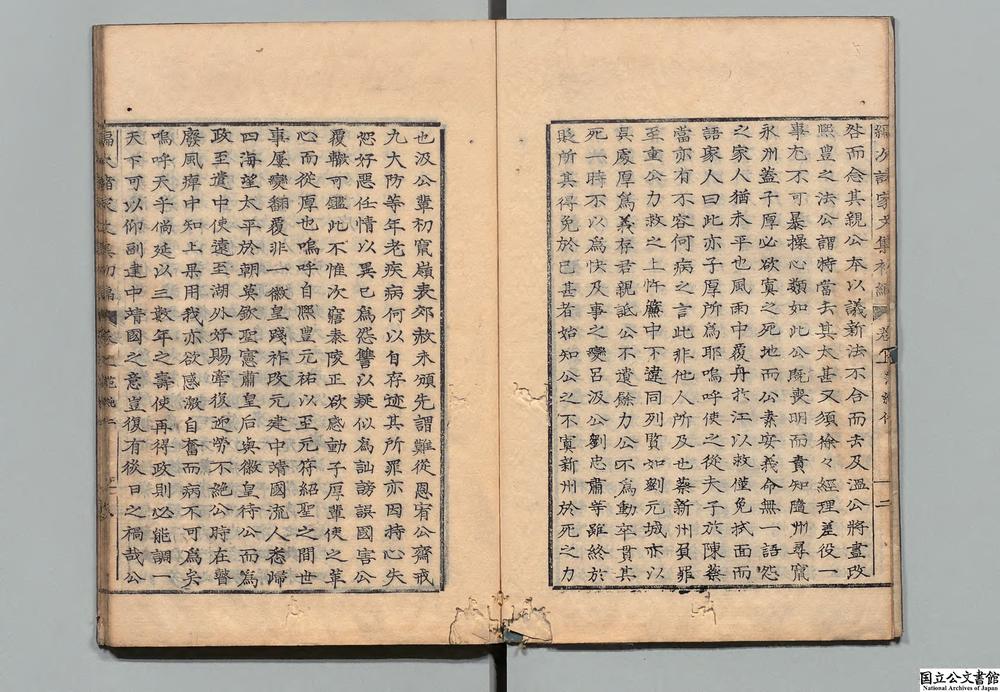 咎而念其親公本以議新法不合而去及溫公將盡改
熙豊之法公謂特當去其太甚又須徐々經理差役一
事尤不可暴操心類如此公旣喪明而責知隨州尋竄
永州蓋子厚必欲寘之死地而公素安義命無一語怨
之家人猶未平也風雨中覆舟於江以救僅免拭面而
語家人曰此亦子厚所爲耶嗚呼使之從夫子於陳蔡
當亦有不容何病之言此非他人所及也蔡新州負罪
至重公力救之上忤簾中下違同列賢如劉元城亦以
其處厚爲義存君親詆公不遺餘力公不爲動卒貫其
死一時不以爲快及事之變呂汲公劉忠肅等雖終於
貶所其得免於已甚者始知公之不寘新州於死之力
也汲公輩初竄嶺表郊赦未頒先謂難從恩宥公齋戒
九大防等年老疾病何以自存迹其所罪亦因持心失
恕好惡任情以異己爲怨讐以疑似爲訕謗誤國害公
覆轍可鑑此不惟次寤泰陵正欲感動子厚輩使之革
心而從厚也嗚呼自熙豊元祐以至元符紹聖之間世
事屢變飜覆非一徽皇踐祚改元建中靖國流人悉歸
四海望太平於朝莫欽聖憲肅皇后與徽皇待公而爲
政至遣中使遠至湖外好賜牽復迎勞不絶公時在瞽
廢風痺中知上果用我亦欲感激自奮而病不可爲矣
嗚呼天乎倘延以三數年之壽使再得政則必能調一
天下可以仰副建中靖國之意豈復有後日之禍哉公
國立公文書館
National Archives of Japan